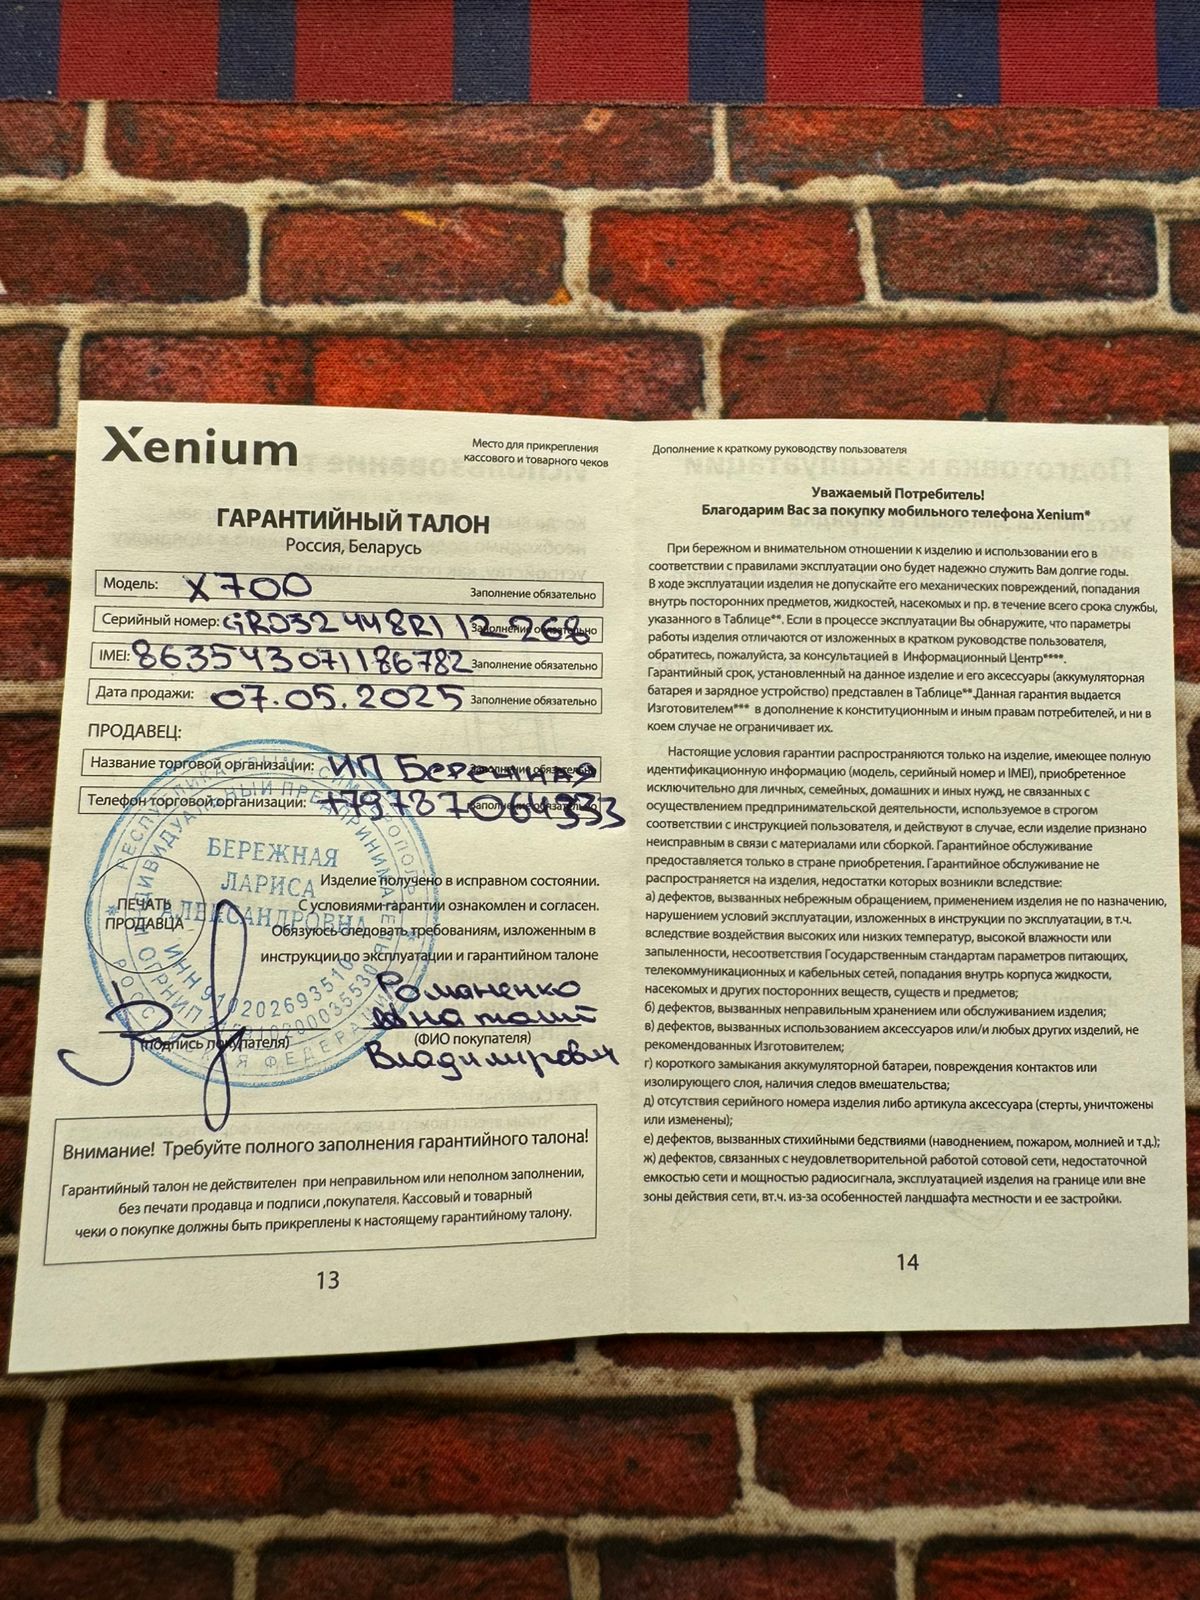 Xenium
Место для прикрепления
кассового и товарного чеков
ГАРАНТИЙНЫЙ ТАЛОН
Россия, Беларусь
Модель: X700 Заполнение обязательно
Серийный номер: GRO32448R112268 Заполнение обязательно
IMEI: 863543071186782 Заполнение обязательно
Дата продажи: 07.05.2025 Заполнение обязательно
ПРОДАВЕЦ:
Название торговой организации: ИП Бережная Заполнение обязательно
Телефон торговой организации: +79787064333 Заполнение обязательно
БЕРЕЖНАЯ
ЛАРИСА
АЛЕКСАНДРОВНА
ИНДИВИДУАЛЬНЫЙ ПРЕДПРИНИМАТЕЛЬ
РОССИЙСКАЯ ФЕДЕРАЦИЯ
ИНН 910202693510
ОГРНИП
ПЕЧАТЬ
ПРОДАВЦА
Изделие получено в исправном состоянии.
С условиями гарантии ознакомлен и согласен.
Обязуюсь следовать требованиям, изложенным в
инструкции по эксплуатации и гарантийном талоне
Романенко
(подпись покупателя)
(ФИО покупателя)
Владимирович
Внимание! Требуйте полного заполнения гарантийного талона!
Гарантийный талон не действителен при неправильном или неполном заполнении,
без печати продавца и подписи ,покупателя. Кассовый и товарный
чеки о покупке должны быть прикреплены к настоящему гарантийному талону.
13
Дополнение к краткому руководству пользователя
Уважаемый Потребитель!
Благодарим Вас за покупку мобильного телефона Xenium*
При бережном и внимательном отношении к изделию и использовании его в
соответствии с правилами эксплуатации оно будет надежно служить Вам долгие годы.
В ходе эксплуатации изделия не допускайте его механических повреждений, попадания
внутрь посторонних предметов, жидкостей, насекомых и пр. в течение всего срока службы,
указанного в Таблице**. Если в процессе эксплуатации Вы обнаружите, что параметры
работы изделия отличаются от изложенных в кратком руководстве пользователя,
обратитесь, пожалуйста, за консультацией в Информационный Центр****.
Гарантийный срок, установленный на данное изделие и его аксессуары (аккумуляторная
батарея и зарядное устройство) представлен в Таблице**.Данная гарантия выдается
Изготовителем*** в дополнение к конституционным и иным правам потребителей, и ни в
коем случае не ограничивает их.
Настоящие условия гарантии распространяются только на изделие, имеющее полную
идентификационную информацию (модель, серийный номер и IMEI), приобретенное
исключительно для личных, семейных, домашних и иных нужд, не связанных с
осуществлением предпринимательской деятельности, используемое в строгом
соответствии с инструкцией пользователя, и действуют в случае, если изделие признано
неисправным в связи с материалами или сборкой. Гарантийное обслуживание
предоставляется только в стране приобретения. Гарантийное обслуживание не
распространяется на изделия, недостатки которых возникли вследствие:
а) дефектов, вызванных небрежным обращением, применением изделия не по назначению,
нарушением условий эксплуатации, изложенных в инструкции по эксплуатации, в т.ч.
вследствие воздействия высоких или низких температур, высокой влажности или
запыленности, несоответствия Государственным стандартам параметров питающих,
телекоммуникационных и кабельных сетей, попадания внутрь корпуса жидкости,
насекомых и других посторонних веществ, существ и предметов;
б) дефектов, вызванных неправильным хранением или обслуживанием изделия;
в) дефектов, вызванных использованием аксессуаров или/и любых других изделий, не
рекомендованных Изготовителем;
г) короткого замыкания аккумуляторной батареи, повреждения контактов или
изолирующего слоя, наличия следов вмешательства;
д) отсутствия серийного номера изделия либо артикула аксессуара (стерты, уничтожены
или изменены);
е) дефектов, вызванных стихийными бедствиями (наводнением, пожаром, молнией и т.д.);
ж) дефектов, связанных с неудовлетворительной работой сотовой сети, недостаточной
емкостью сети и мощностью радиосигнала, эксплуатацией изделия на границе или вне
зоны действия сети, вт.ч. из-за особенностей ландшафта местности и ее застройки.
14